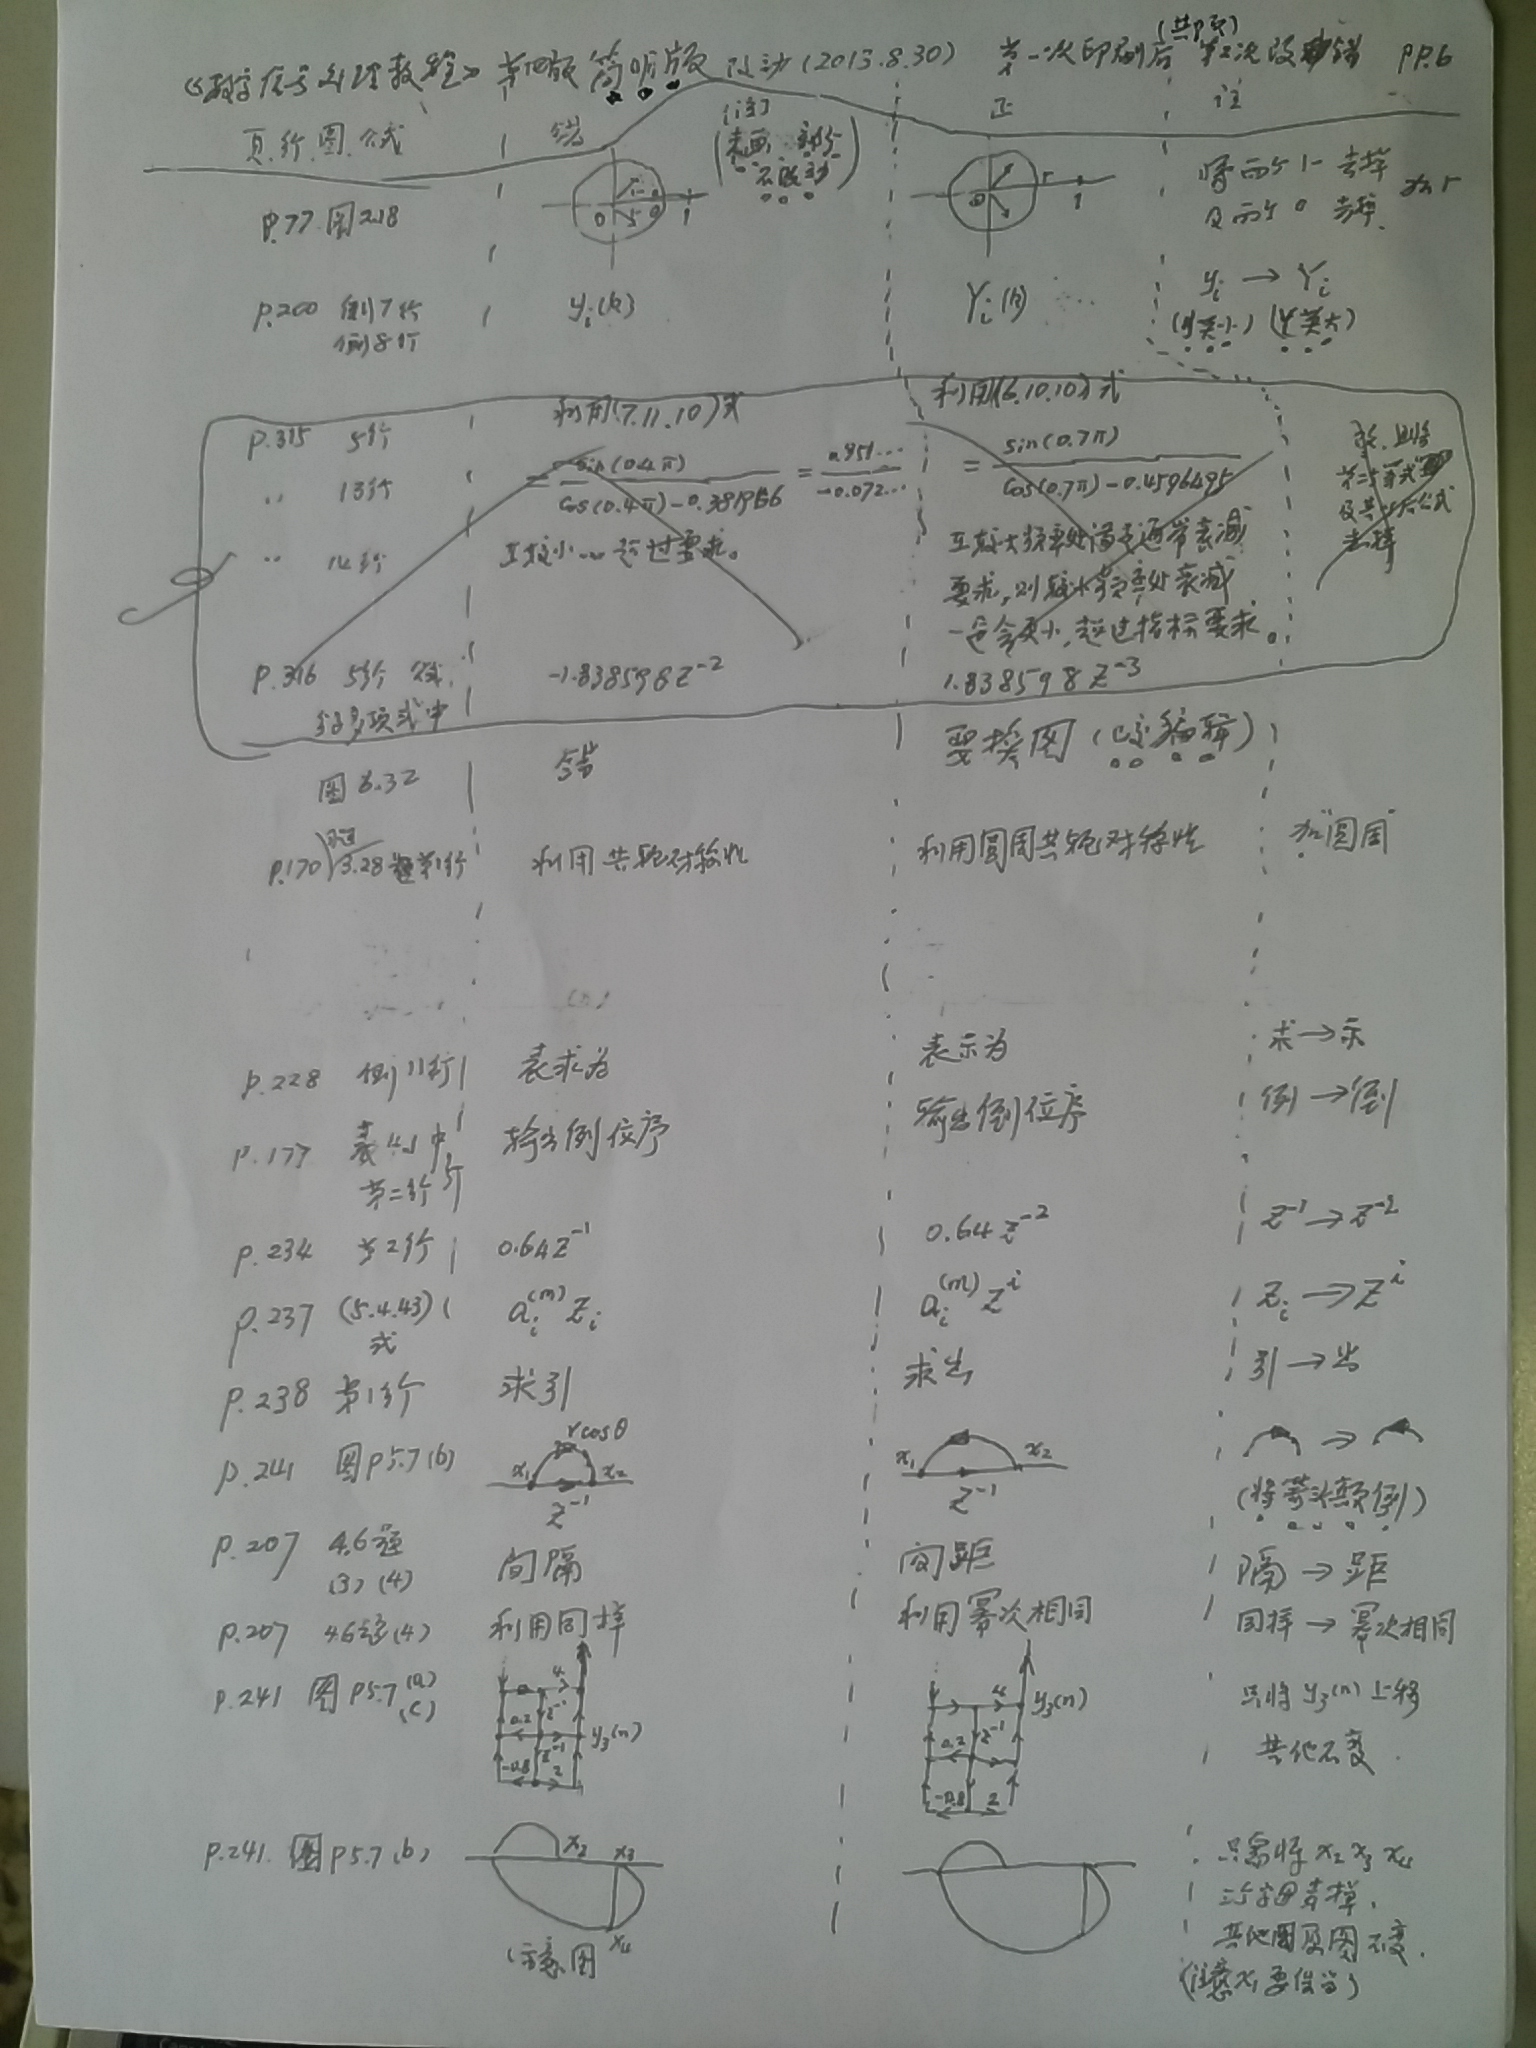 《数字信号处理教程》第四版简明版 改动(2013.8.30) 第一次印刷后(共P页)第2次改错 PP.6
页.行.图.公式 错 [注](未画部分不改动) 正 注
P.77 图2.18 0 1 r 1 将两个1去掉 及两个0去掉. 加r
P.200 倒7行 yi(k) Yi(k) yi → Yi
倒8行 (小英大)
P.315 5行 利用(7.11.10)式 利用(6.10.10)式
〃 13行 = sin(0.4π) / cos(0.4π)-0.3819566 = 0.951... / -0.072... = sin(0.7π) / cos(0.7π)-0.4596495 第二等式 及其后公式 去掉
〃 14行 且较小...超过要求。 且较大频率处满足通带衰减
要求,则较小频率处衰减
一定会更小,超过指标要求。
P.316 5行 公式 -1.838598z⁻² 1.838598z⁻³
分子多项式中
图6.32 错 要换图(已编辑)
P.170 3.28题第1行 利用共轭对称性 利用圆周共轭对称性 加"圆周"
P.228 倒11行 表求为 表示为 求→示
P.177 表4.1中 输出例位序 输出倒位序 例→倒
第二行
P.234 第2行 0.64z⁻¹ 0.64z⁻² z⁻¹→z⁻²
P.237 (5.4.43) 式 aᵢ⁽ᵐ⁾zᵢ aᵢ⁽ᵐ⁾zⁱ zᵢ→zⁱ
P.238 第1行 求引 求出 引→出
P.241 图P5.7(b) rcosθ x₁ x₂ z⁻¹ x₁ x₂ z⁻¹ →
(将箭头颠倒)
P.207 4.6题 (3)(4) 间隔 间距 隔→距
P.207 4.6题(4) 利用同样 利用幂次相同 同样→幂次相同
P.241 图P5.7(a) (c) 4 z⁻¹ 0.2 z⁻¹ y₃(n) -0.8 2 4 y₃(n) 0.2 z⁻¹ -0.8 2 只将y₃(n)上移
其他不变.
P.241. 图P5.7(b) x₂ x₃ x₄ 只需将x₂x₃x₄
三个字母去掉.
示意图 其他图及图不变.
(注意x₁要保留)